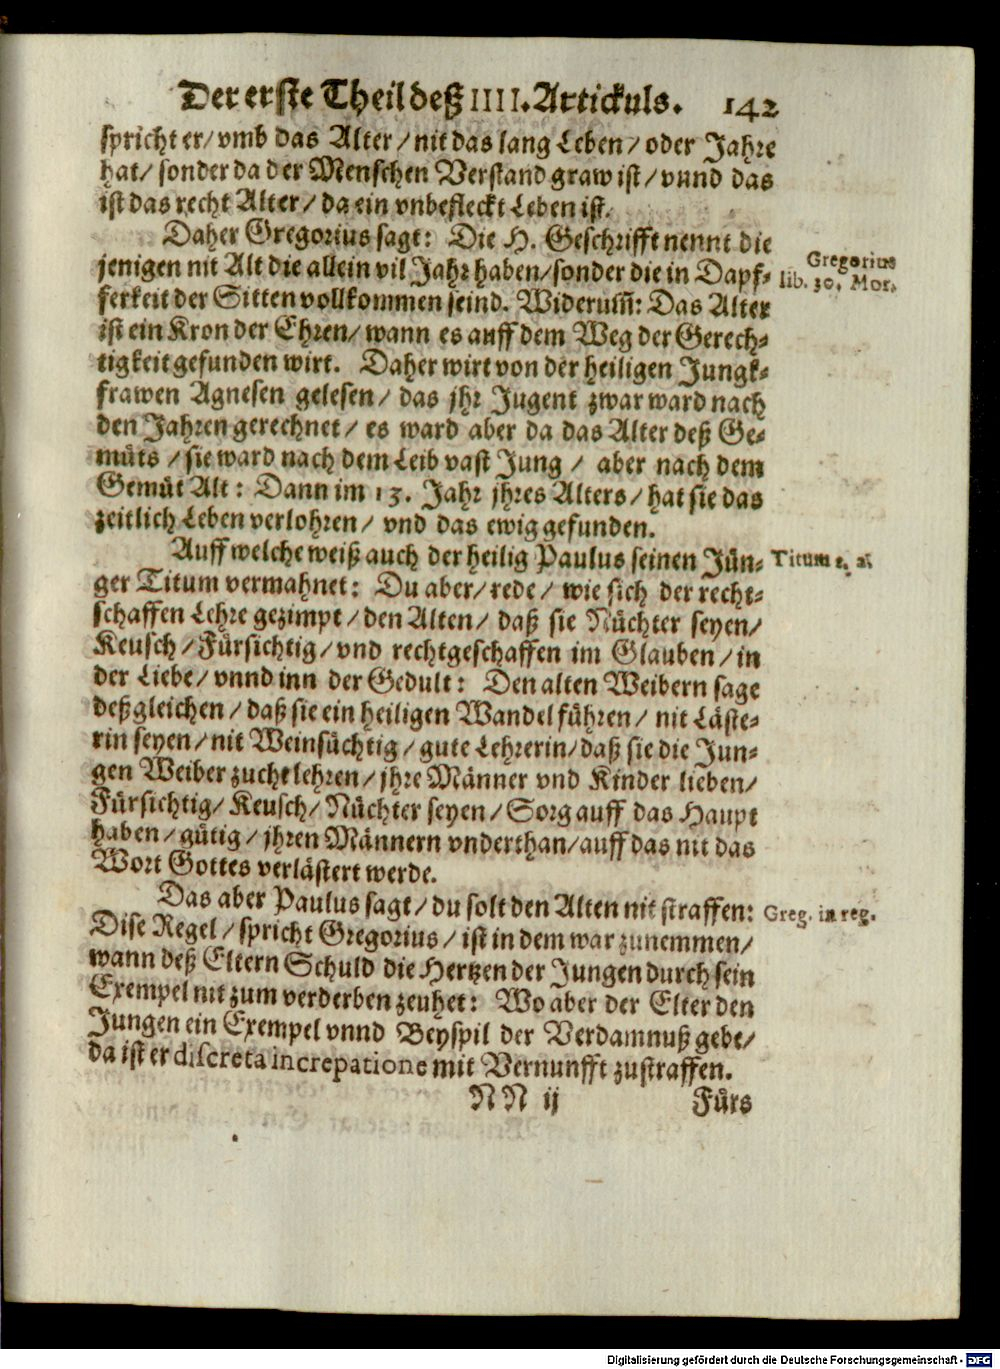 Der erste Theil deß IIII. Artickuls. 142
spricht er/ vmb das Alter/ nit das lang Leben/ oder Jahre
hat/ sonder da der Menschen Verstand graw ist/ vnnd das
ist das recht Alter/ da ein vnbefleckt Leben ist.
Daher Gregorius sagt: Die H. Geschrifft nennt die
Gregorius
jenigen nit Alt die allein vil Jahr haben/ sonder die in Dapf-
lib. 30. Mor.
ferkeit der Sitten vollkommen seind. Widerum̃: Das Alter
ist ein Kron der Ehren/ wann es auff dem Weg der Gerech-
tigkeit gefunden wirt. Daher wirt von der heiligen Jungk-
frawen Agnesen gelesen/ das jhr Jugent zwar ward nach
den Jahren gerechnet/ es ward aber da das Alter deß Ge-
müts/ sie ward nach dem Leib vast Jung/ aber nach dem
Gemüt Alt: Dann im 13. Jahr jhres Alters/ hat sie das
zeitlich Leben verlohren/ vnd das ewig gefunden.
Auff welche weiß auch der heilig Paulus seinen Jün-
Titum
ger Titum vermahnet: Du aber/ rede/ wie sich der recht-
schaffen Lehre gezimpt/ den Alten/ daß sie Nüchter seyen/
Keusch/ Fürsichtig/ vnd rechtgeschaffen im Glauben/ in
der Liebe/ vnnd inn der Gedult: Den alten Weibern sage
deßgleichen/ daß sie ein heiligen Wandel führen/ nit Läste-
rin seyen/ nit Weinsüchtig/ gute Lehrerin/ daß sie die Jun-
gen Weiber zucht lehren/ jhre Männer vnd Kinder lieben/
Fürsichtig/ Keusch/ Nüchter seyen/ Sorg auff das Haupt
haben/ gütig/ jhren Männern vnderthan/ auff das nit das
Wort Gottes verlästert werde.
Das aber Paulus sagt/ du solt den Alten nit straffen:
Greg. in reg.
Dise Regel/ spricht Gregorius/ ist in dem war zunemmen/
wann deß Eltern Schuld die Hertzen der Jungen durch sein
Exempel nit zum verderben zeuhet: Wo aber der Elter den
Jungen ein Exempel vnnd Beyspil der Verdamnuß gebe/
da ist er discreta increpatione mit Vernunfft zustraffen.
NN ij Fürs
Digitalisierung gefördert durch die Deutsche Forschungsgemeinschaft - DFG